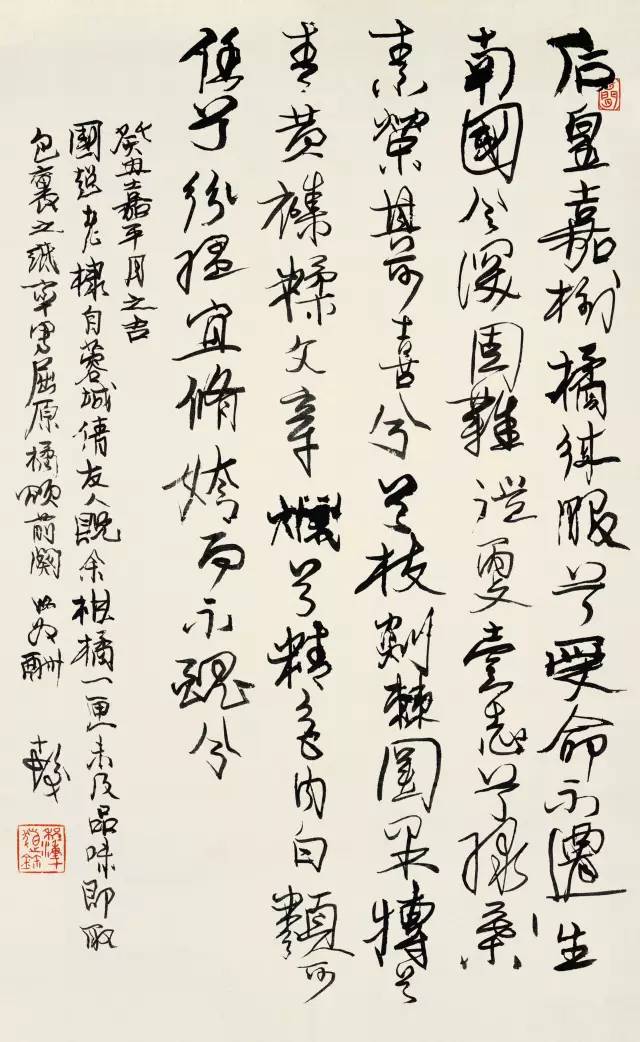 后皇嘉樹橘徠服兮受命不遷生
南國兮深固難徙更壹志兮綠葉
素榮其可喜兮曾枝剡棘圜果摶兮
青黃雜糅文章爛兮精色內白類可
任兮紛緼宜脩姱而不醜兮
癸丑嘉平月之吉
國超老棣自蓉城倩友人貺余柑橘一匣未及品味即取
包裹之紙率書屈原橘頌前闋以為酬 十髮